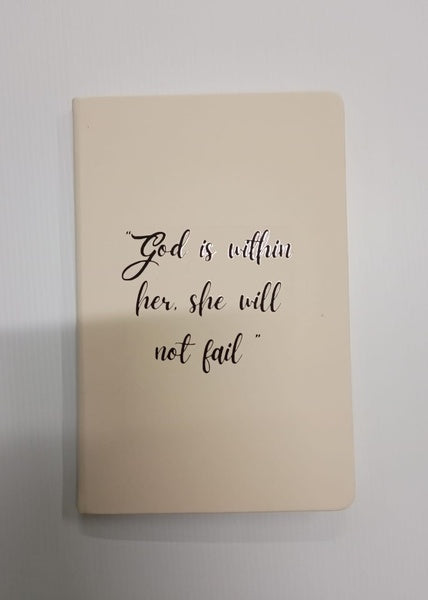 "God is within
her, she will
not fail"